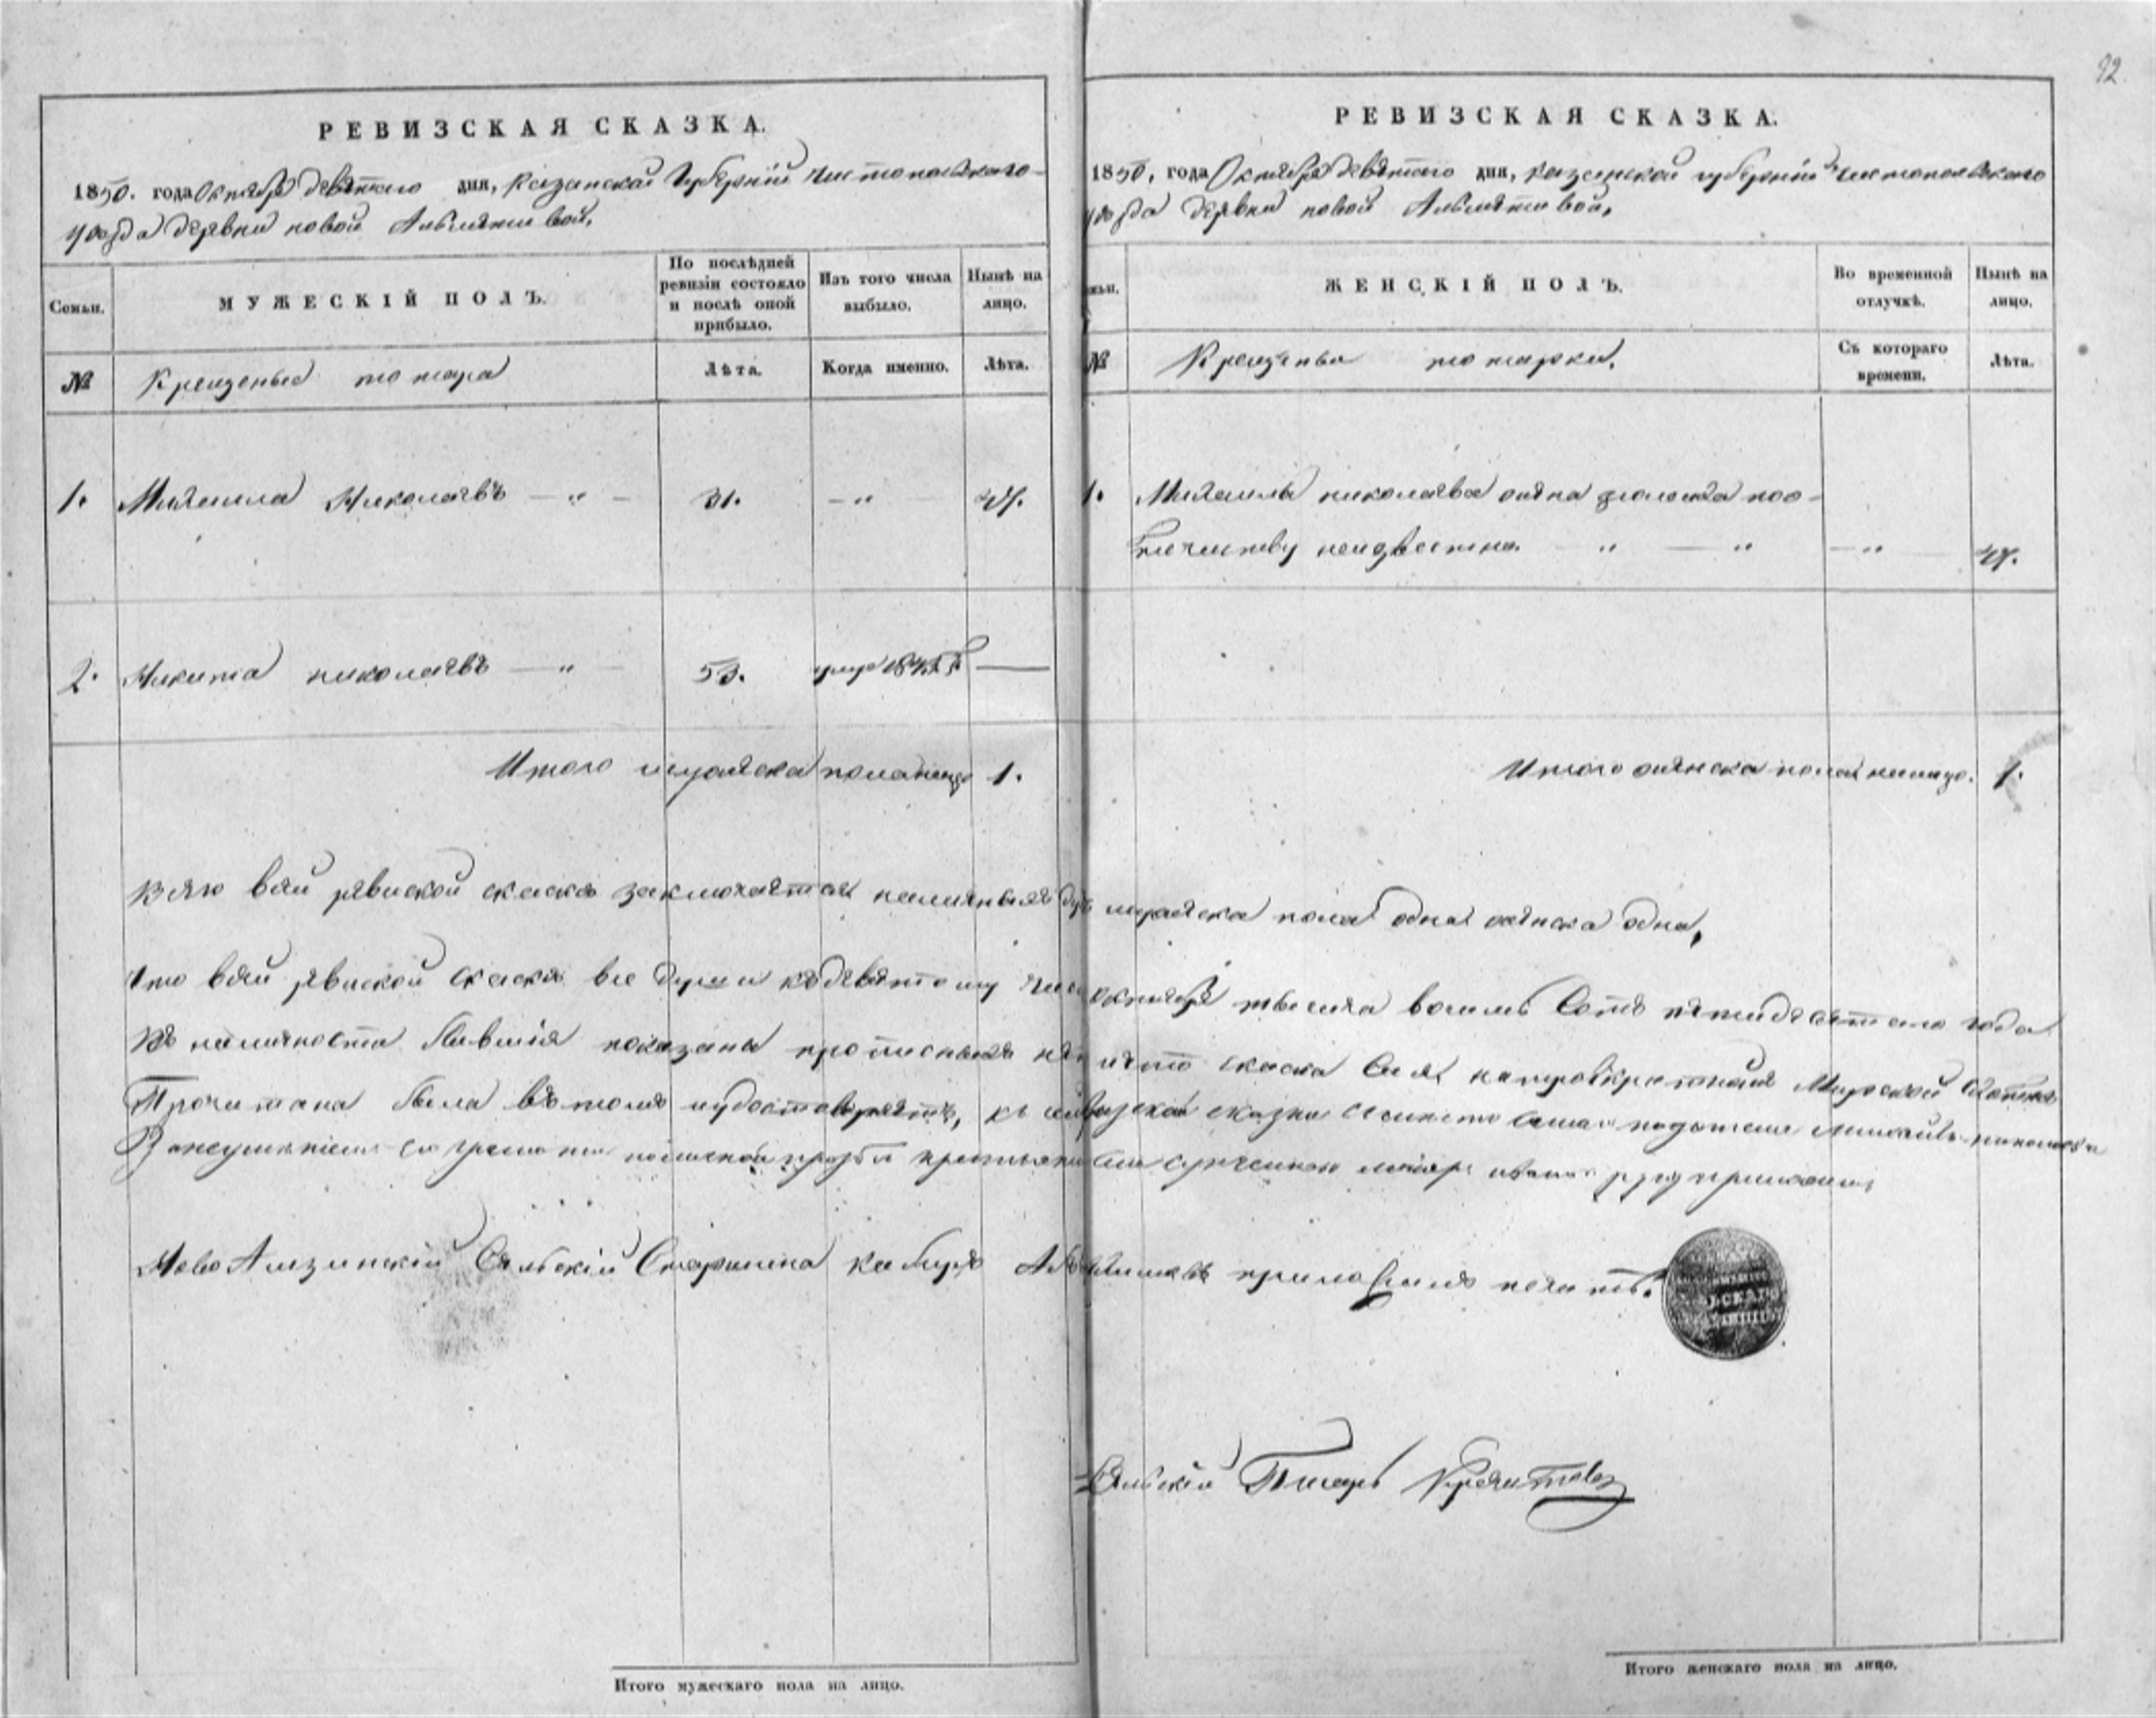 92
РЕВИЗСКАЯ СКАЗКА.
1850. года Октября девятого дня, Казанской Губернiй Чистопольскаго
уезда деревни новой Альметевой,
Семьи.
МУЖЕСКІЙ ПОЛЪ.
По послѣдней ревизіи состояло и послѣ оной прибыло.
Изъ того числа выбыло.
Нынѣ на лицо.
№
Крещеныя татара
Лѣта.
Когда именно.
Лѣта.
1. Николаевъ — „ — 31. — „ 47.
2. Никита николаевъ — „ — 53. умеръ —
Итого мужеска пола налицо 1.
РЕВИЗСКАЯ СКАЗКА.
1850, года Октября девятого дня, казанской губерніи чистопольскаго
уезда деревни новой Альметевой,
ЖЕНСКІЙ ПОЛЪ.
Во временной отлучкѣ.
Нынѣ на лицо.
№
Крещеныя татарки.
Съ котораго времени.
Лѣта.
1. николаева жена по о-
течеству неизвестна. „ — „ — „ 47.
Итого женска пола налицо. 1.
Всего всей ревиской скаске заключается наличныхъ душъ мужеска пола одна женска одна,
Что всей ревиской скаске все души къ девятому числу октября тысяча восимь Сотъ пятидесятого года
Въ наличности бывшія показаны прописныхъ нетъ скаска Сия Мирской
Прочитана была въ томъ иудостоверяетъ, къ сей ревизской сказки
грамоте просьбе руку приложилъ
Ново Сельскій Старшина приложилъ печать.
Сельскій Писарь
Итого мужескаго пола на лицо.
Итого женскаго пола на лицо.